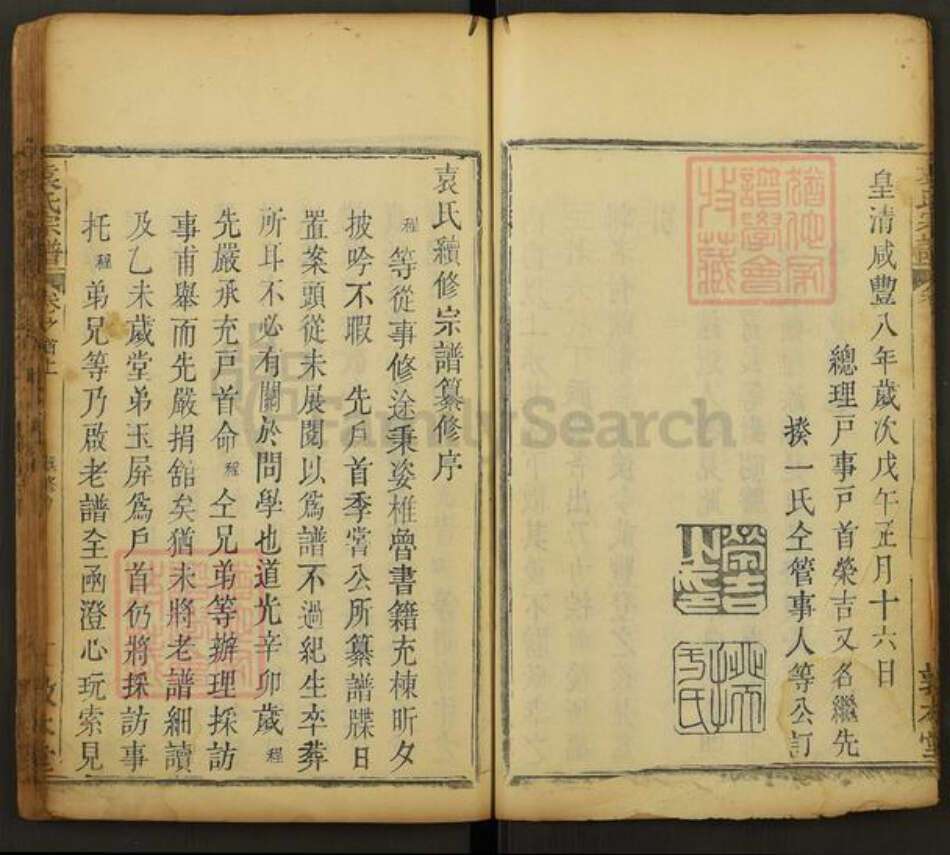 皇清咸豐八年歲次戊午正月十六日
總理戸事戸首榮吉又名繼先
揆一氏仝管事人等公訂
袁氏續修宗譜纂修序
程等從事修途秉姿椎魯書籍充棟昕夕
披吟不暇 先戸首季嘗公所纂譜牒日
置案頭從未展閱以為譜不過紀生卒葬
所耳不必有關於問學也道光辛卯歲程
先嚴承充戸首命程仝兄弟等辦理採訪
事甫舉而先嚴捐舘矣猶未將老譜細讀
及乙未歲堂弟玉屏為戸首仍將採訪事
托程弟兄等乃啟老譜全函澄心玩索見
袁氏宗譜
敦本堂
FamilySearch